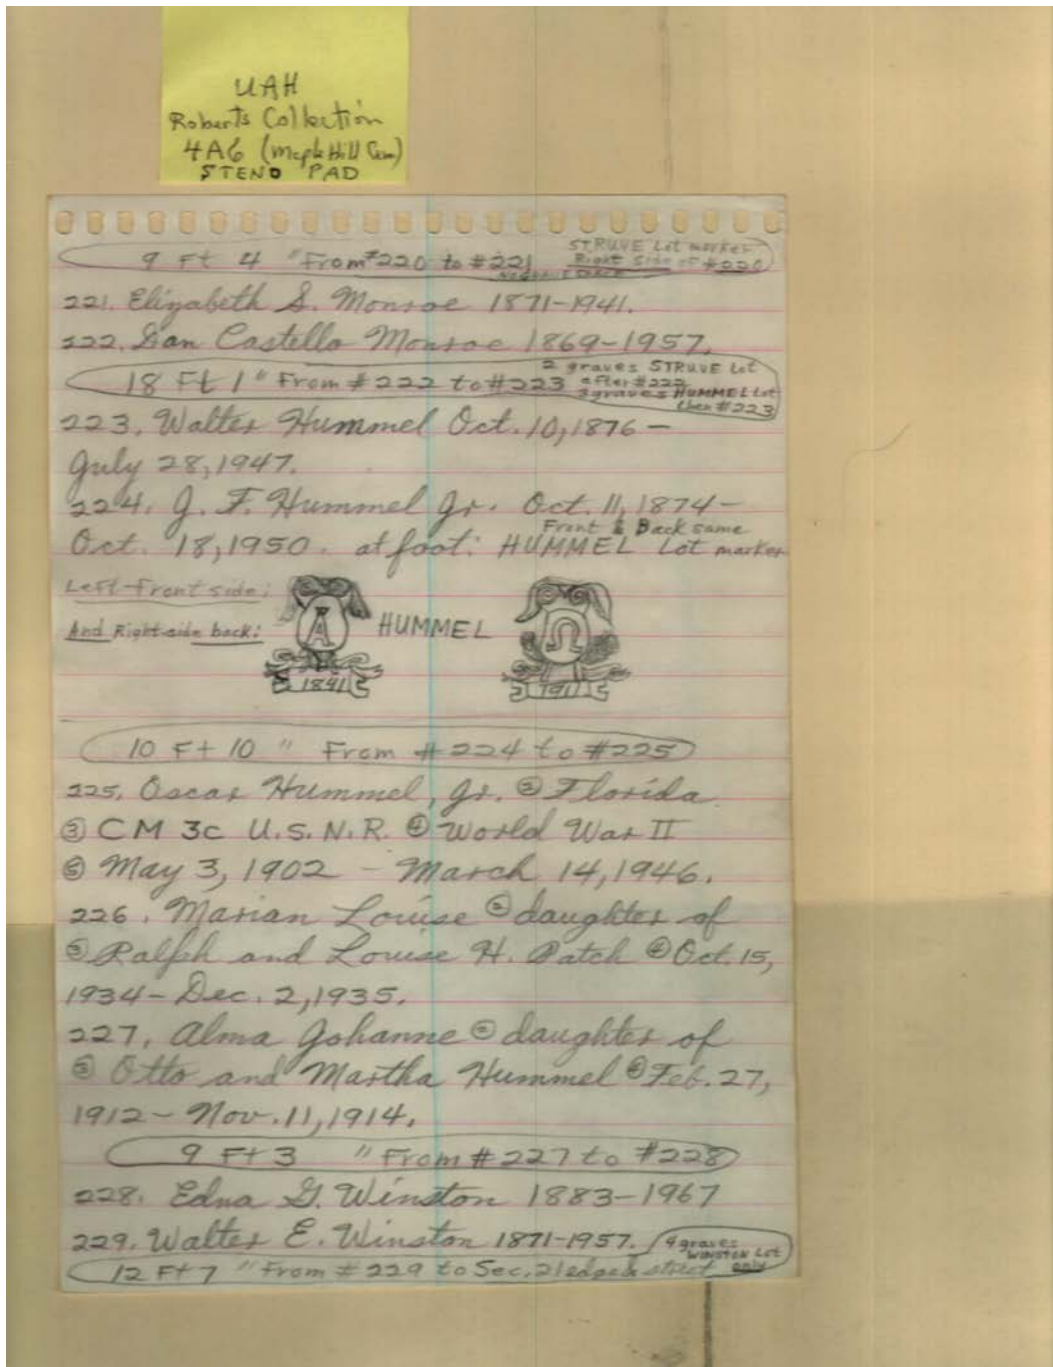 UAH
Roberts Collection
4A6 (Maple Hill Cem)
STENO PAD
STRUVE Lot marker
9 Ft 4 " From #220 to #221 Right side of #220
221. Elizabeth S. Monroe 1871-1941.
222. Dan Costello Monroe 1869-1957.
2 graves STRUVE Lot
18 Ft 1 " From #222 to #223 after #222
3 graves HUMMEL Lot
then #223
223. Walter Hummel Oct. 10, 1876 -
July 28, 1947.
224. J. F. Hummel Jr. Oct. 11, 1874 -
Front & Back same
Oct. 18, 1950. at foot: HUMMEL Lot marker
Left-front side:
And Right-side back: A HUMMEL Ω
1841 1911
10 Ft 10 " From #224 to #225
225. Oscar Hummel, Jr. ② Florida
③ CM 3c U.S.N.R. ④ World War II
⑤ May 3, 1902 - March 14, 1946.
226. Marian Louise ② daughter of
③ Ralph and Louise H. Patch ④ Oct. 15,
1934 - Dec. 2, 1935.
227. Alma Johanne ② daughter of
③ Otto and Martha Hummel ④ Feb. 27,
1912 - Nov. 11, 1914.
9 Ft 3 " From #227 to #228
228. Edna G. Winston 1883-1967
229. Walter E. Winston 1871-1957. 4 graves
WINSTON Lot
12 Ft 7 " From #229 to Sec. 21 edge & street only